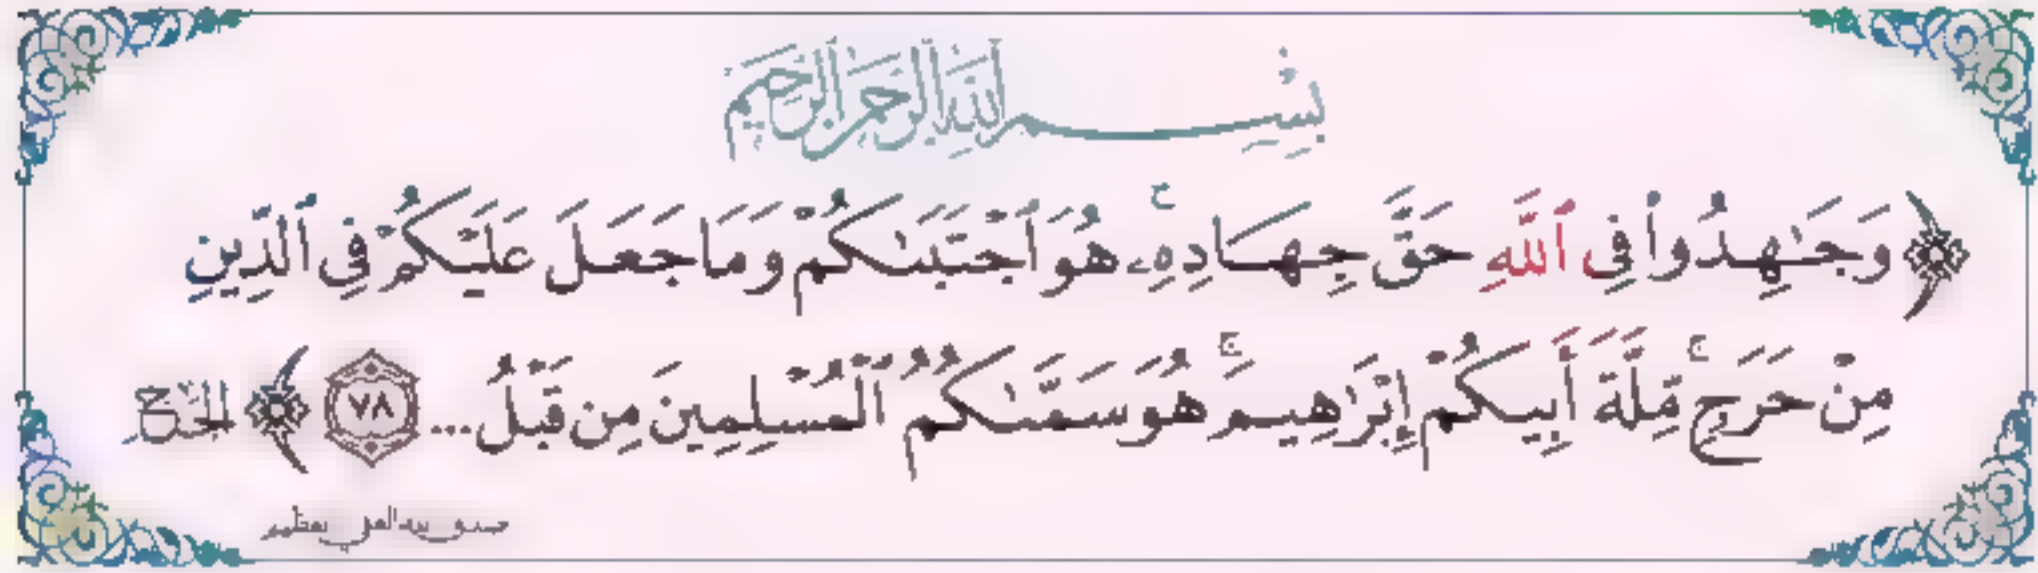 بِسْمِ اللَّهِ الرَّحْمَٰنِ الرَّحِيمِ
﴿ وَجَٰهِدُوا۟ فِى ٱللَّهِ حَقَّ جِهَادِهِۦ ۚ هُوَ ٱجْتَبَىٰكُمْ وَمَا جَعَلَ عَلَيْكُمْ فِى ٱلدِّينِ
مِنْ حَرَجٍ ۚ مِّلَّةَ أَبِيكُمْ إِبْرَٰهِيمَ ۚ هُوَ سَمَّىٰكُمُ ٱلْمُسْلِمِينَ مِن قَبْلُ... ٧٨ ﴾ الحَجّ
صدق الله العلي العظيم